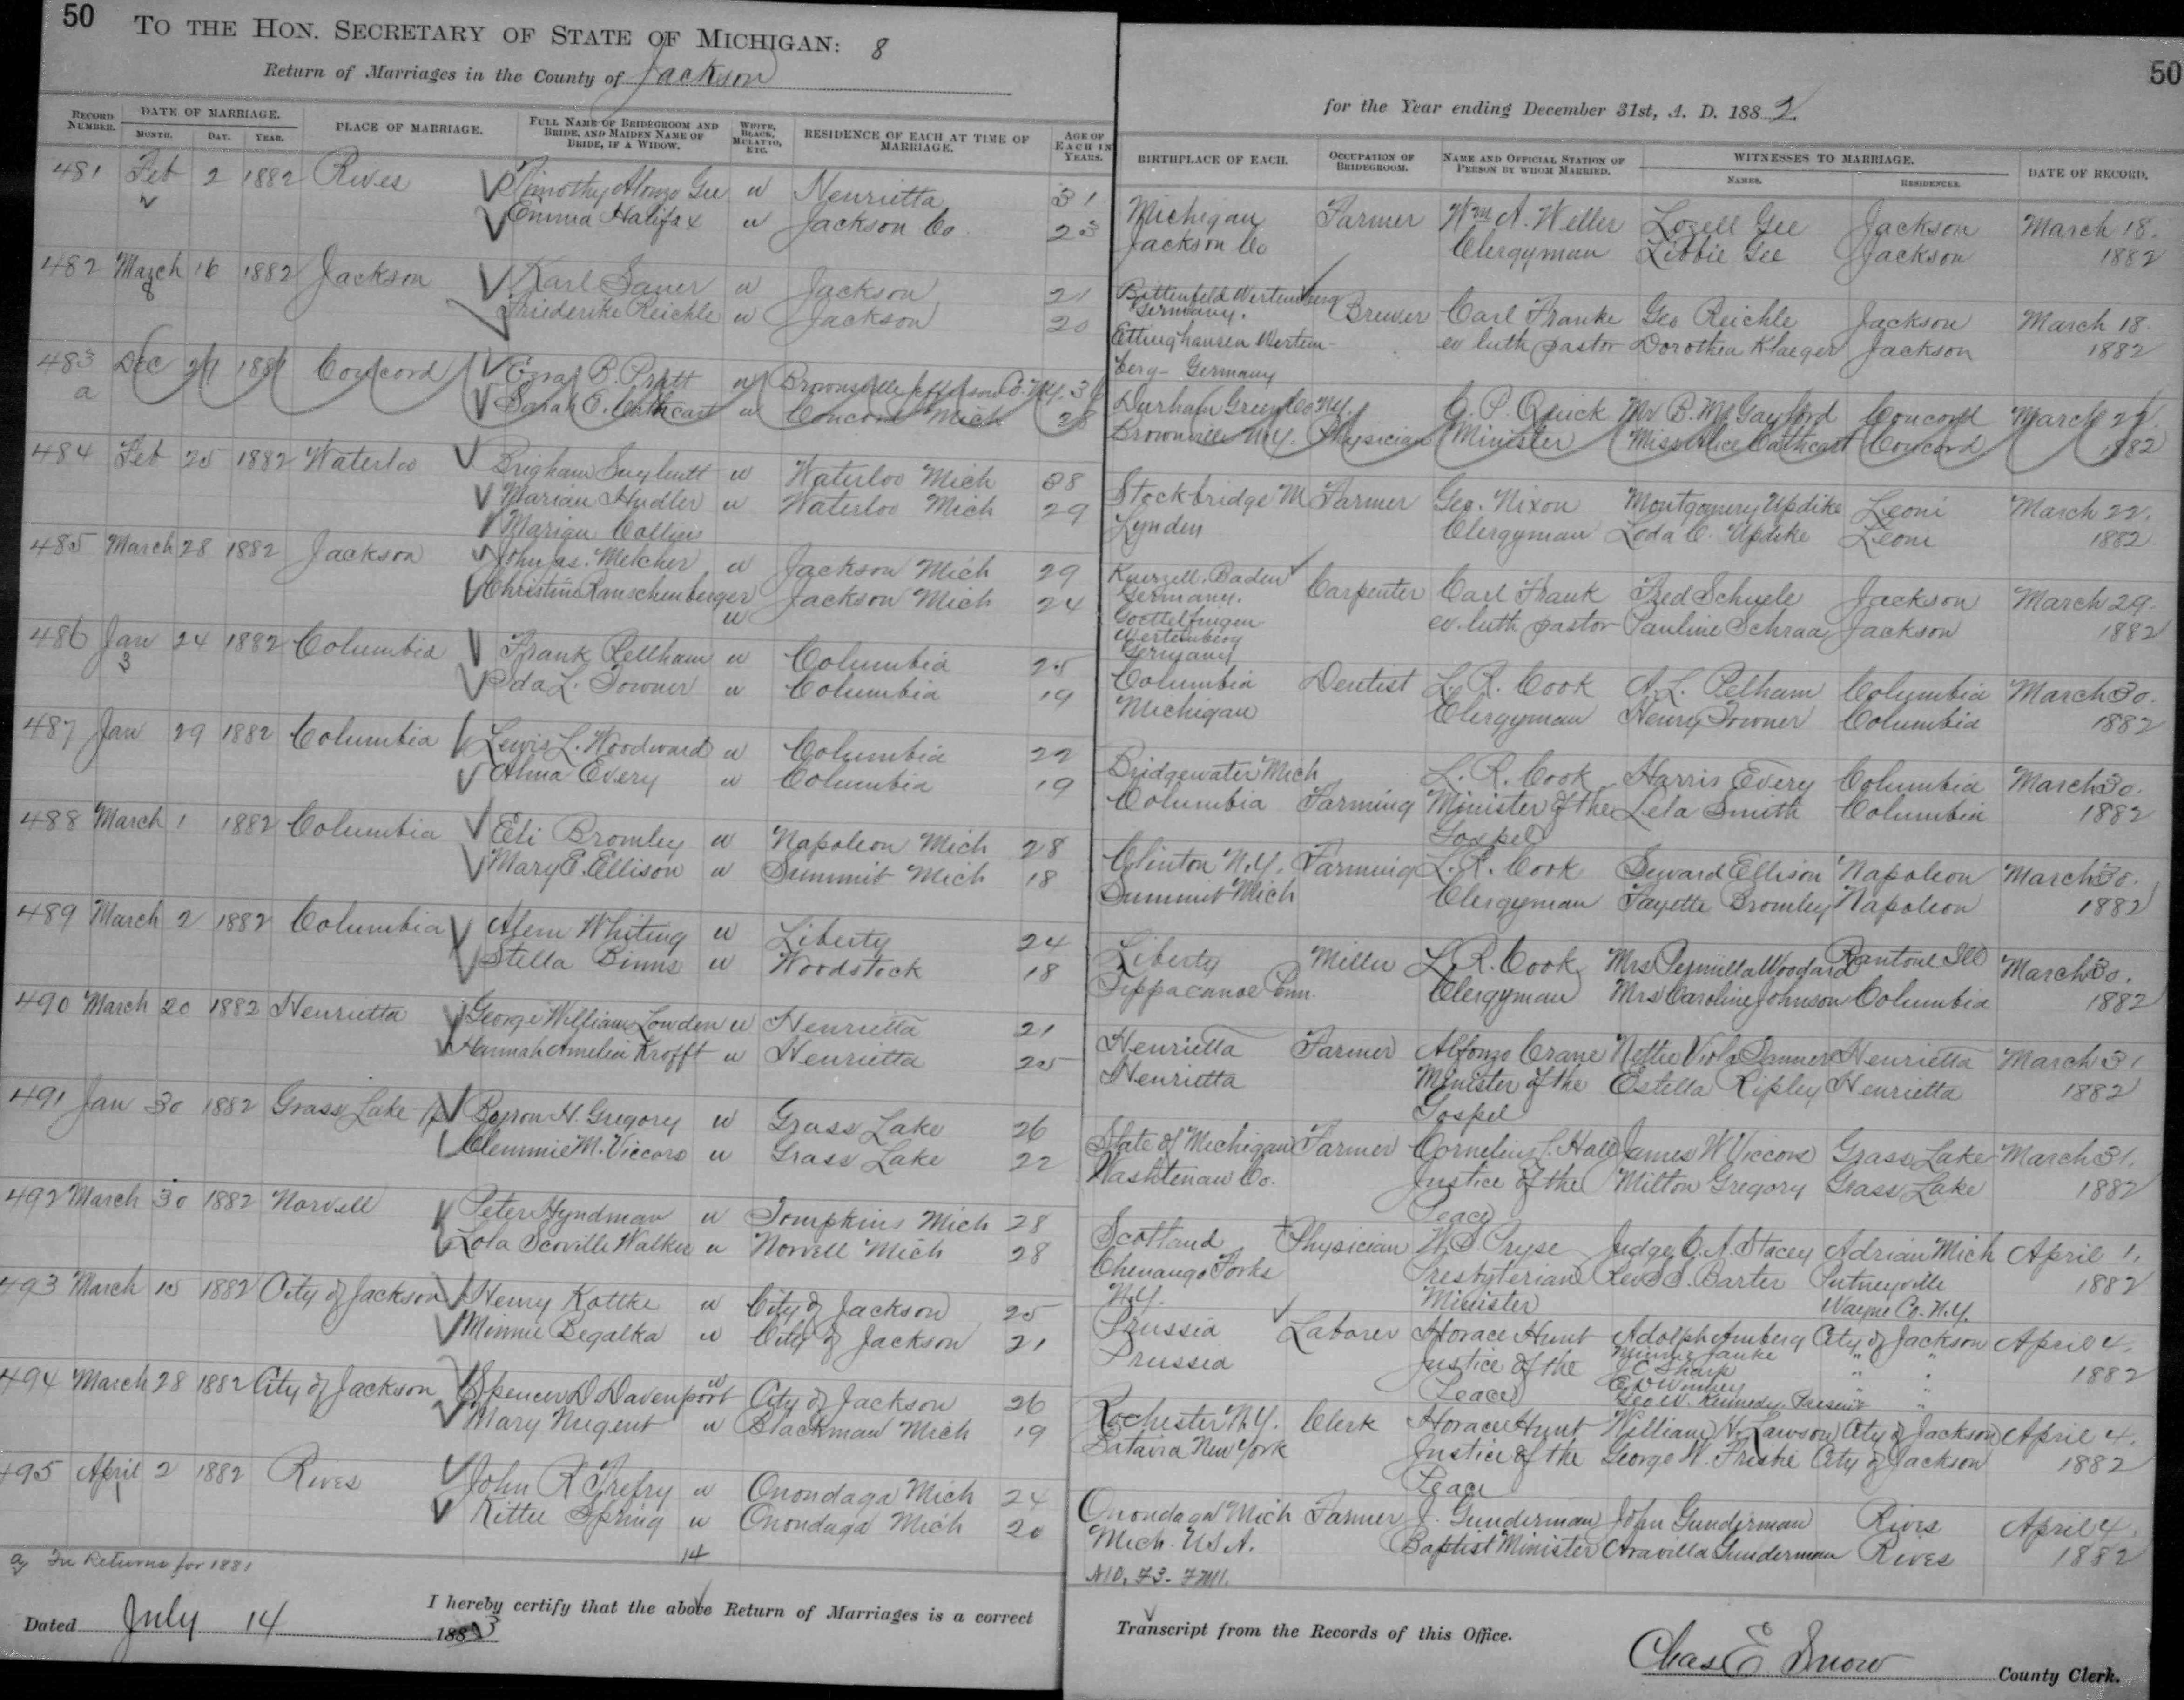 50
TO THE HON. SECRETARY OF STATE OF MICHIGAN: 8
Return of Marriages in the County of Jackson
RECORD NUMBER. DATE OF MARRIAGE. MONTH. DAY. YEAR. PLACE OF MARRIAGE. FULL NAME OF BRIDEGROOM AND BRIDE, AND MAIDEN NAME OF BRIDE, IF A WIDOW. WHITE, BLACK, MULATTO, ETC. RESIDENCE OF EACH AT TIME OF MARRIAGE. AGE OF EACH IN YEARS.
481 Feb 2 1882 Rives Timothy Alonzo Gee w Henrietta 31
Emma Halifax w Jackson Co. 23
482 March 16 1882 Jackson Karl Sauer w Jackson 21
8 Friederike Reichle w Jackson 20
483 Dec 1881 Concord Ezra B. Pratt w Brownsville Jefferson Co. N.Y.
a Sarah E. Cathcart w Concord Mich
484 Feb 25 1882 Waterloo Brigham w Waterloo Mich 38
Marian Hudler w Waterloo Mich 29
Marian Collins
485 March 28 1882 Jackson John Jas. Melcher w Jackson Mich 29
Christine Ranschenberger w Jackson Mich 24
486 Jan 24 1882 Columbia Frank Pellham w Columbia 25
3 Ida L. Towner w Columbia 19
487 Jan 29 1882 Columbia Lewis L. Woodward w Columbia 22
Alma Every w Columbia 19
488 March 1 1882 Columbia Eli Bromley w Napoleon Mich 28
Mary E. Ellison w Summit Mich 18
489 March 2 1882 Columbia Alem Whiting w Liberty 24
Stella Binns w Woodstock 18
490 March 20 1882 Henrietta George William Lowden w Henrietta 21
Hannah Amelia Krofft w Henrietta 25
491 Jan 30 1882 Grass Lake Tp Byron H. Gregory w Grass Lake 26
Clemmie M. Viccors w Grass Lake 22
492 March 30 1882 Norvell Peter Hyndman w Tompkins Mich 28
Lola Scoville Walker w Norvell Mich 28
493 March 15 1882 City of Jackson Henry Kottke w City of Jackson 25
Minnie Begalka w City of Jackson 21
494 March 28 1882 City of Jackson Spencer D Davenport w City of Jackson 26
Mary Nugent w Blackman Mich 19
495 April 2 1882 Rives John R Trefry w Onondaga Mich 24
1 Kittie Spring w Onondaga Mich 20
14
a In Returns for 1881
Dated July 14 1883
I hereby certify that the above Return of Marriages is a correct
50
for the Year ending December 31st, A. D. 1882
BIRTHPLACE OF EACH. OCCUPATION OF BRIDEGROOM. NAME AND OFFICIAL STATION OF PERSON BY WHOM MARRIED. WITNESSES TO MARRIAGE. NAMES. RESIDENCES. DATE OF RECORD.
Michigan Farmer Wm A. Weller Lozell Gee Jackson March 18.
Jackson Co Clergyman Libbie Gee Jackson 1882
Bittenfeld Wertemberg Germany. Brewer Carl Franke Geo Reichle Jackson March 18.
Ettinghausen Wertem- ev luth pastor Dorothea Klaeger Jackson 1882
berg Germany
Durham Green Co N.Y. C. P. Quick Mr B. M. Gaylord Concord March
Brownville N.Y. Physician Minister Miss Alice Cathcart Concord 1882
Stockbridge M Farmer Geo. Nixon Montgomery Updike Leoni March 22.
Lynden Clergyman Loda C. Updike Leoni 1882
Kuerzell. Baden Germany. Carpenter Carl Frank Fred Schuele Jackson March 29.
Goettelfingen Wertemberg Germany ev. luth pastor Pauline Schraa Jackson 1882
Columbia Dentist L. R. Cook A. L. Pelham Columbia March 30.
Michigan Clergyman Henry Towner Columbia 1882
Bridgewater Mich L. R. Cook Harris Every Columbia March 30.
Columbia Farming Minister of the Gospel Lela Smith Columbia 1882
Clinton N.Y. Farming L. R. Cook Seward Ellison Napoleon March 30.
Summit Mich Clergyman Fayette Bromley Napoleon 1882
Liberty Miller L. R. Cook Mrs Permilla Woodard Rantoul Ill March 30.
Tippacanoe Penn. Clergyman Mrs Caroline Johnson Columbia 1882
Henrietta Farmer Alfonzo Crane Nettie Viola Tanner Henrietta March 31
Henrietta Minister of the Gospel Estella Ripley Henrietta 1882
State of Michigan Farmer Cornelius L. Hall James W Viccors Grass Lake March 31.
Washtenaw Co. Justice of the Peace Milton Gregory Grass Lake 1882
Scotland Physician W. S Pryse Judge C. A. Stacey Adrian Mich April 1.
Chenango Forks N.Y. Presbyterian Minister Rev S. S. Barter Putneyville Wayne Co. N.Y. 1882
Prussia Laborer Horace Hunt Adolph Amberg City of Jackson April 4.
Prussia Justice of the Peace Minnie Janke " " 1882
J C Sharp " "
Geo W. Kennedy. Present "
Rochester N.Y. Clerk Horace Hunt William H. Lawson City of Jackson April 4.
Batavia New York Justice of the Peace George W. Frisbie City of Jackson 1882
Onondaga Mich Farmer J. Gunderman John Gunderman Rives April 4.
Mich. U.S.A. Baptist Minister Aravilla Gunderman Rives 1882
N10. F3. FM11.
Transcript from the Records of this Office.
Chas E Snow County Clerk.